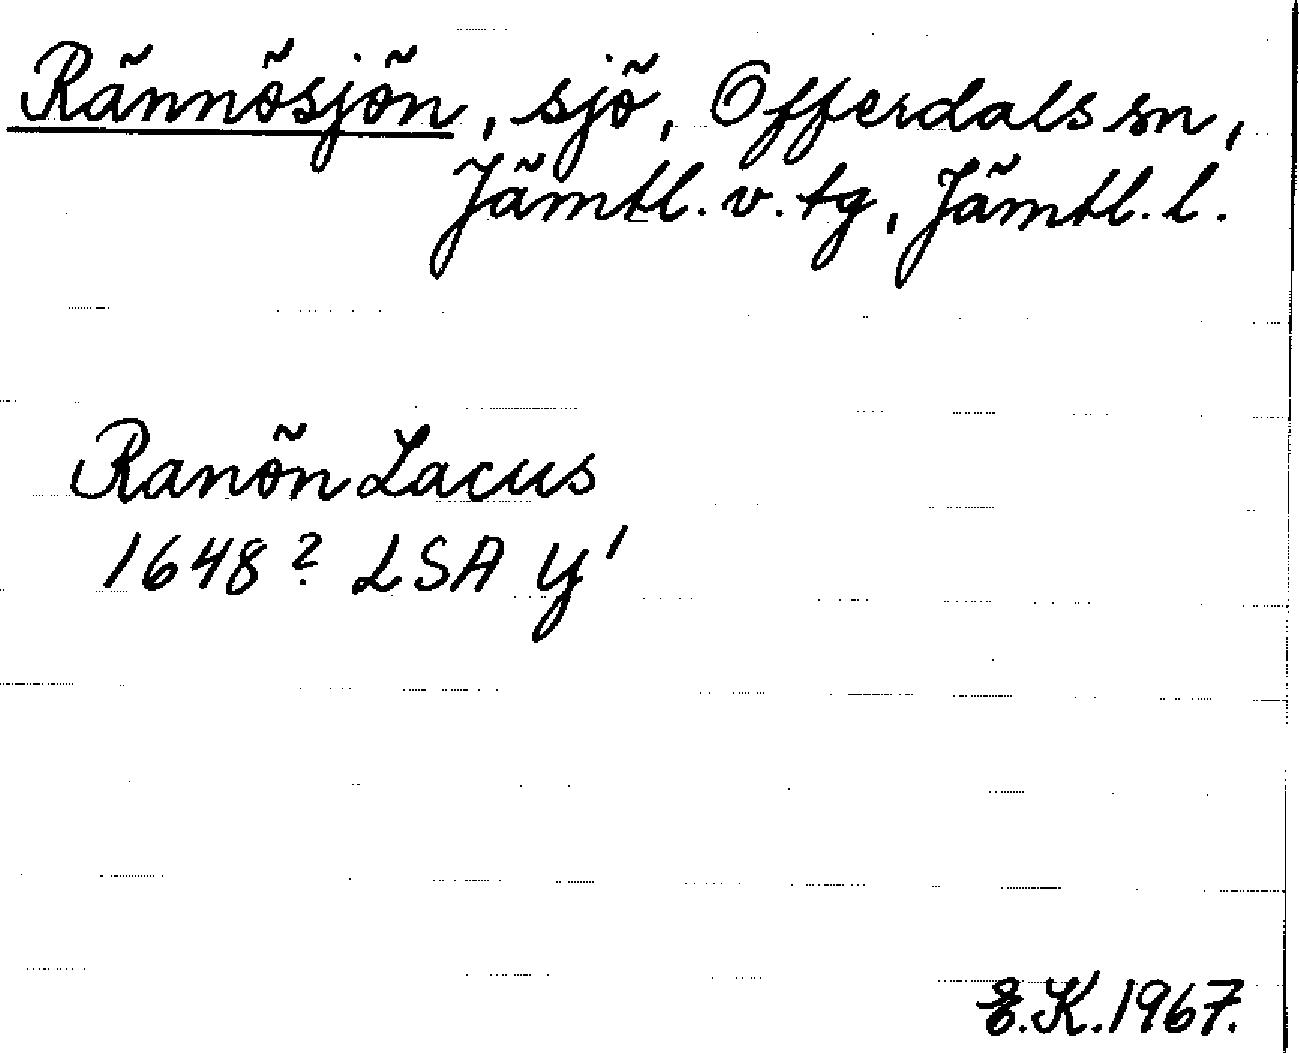 Rännösjön, sjö, Offerdals sn,
Jämtl. v. tg, Jämtl. l.
Ranön Lacus
1648? LSA Y'
E.K. 1967.